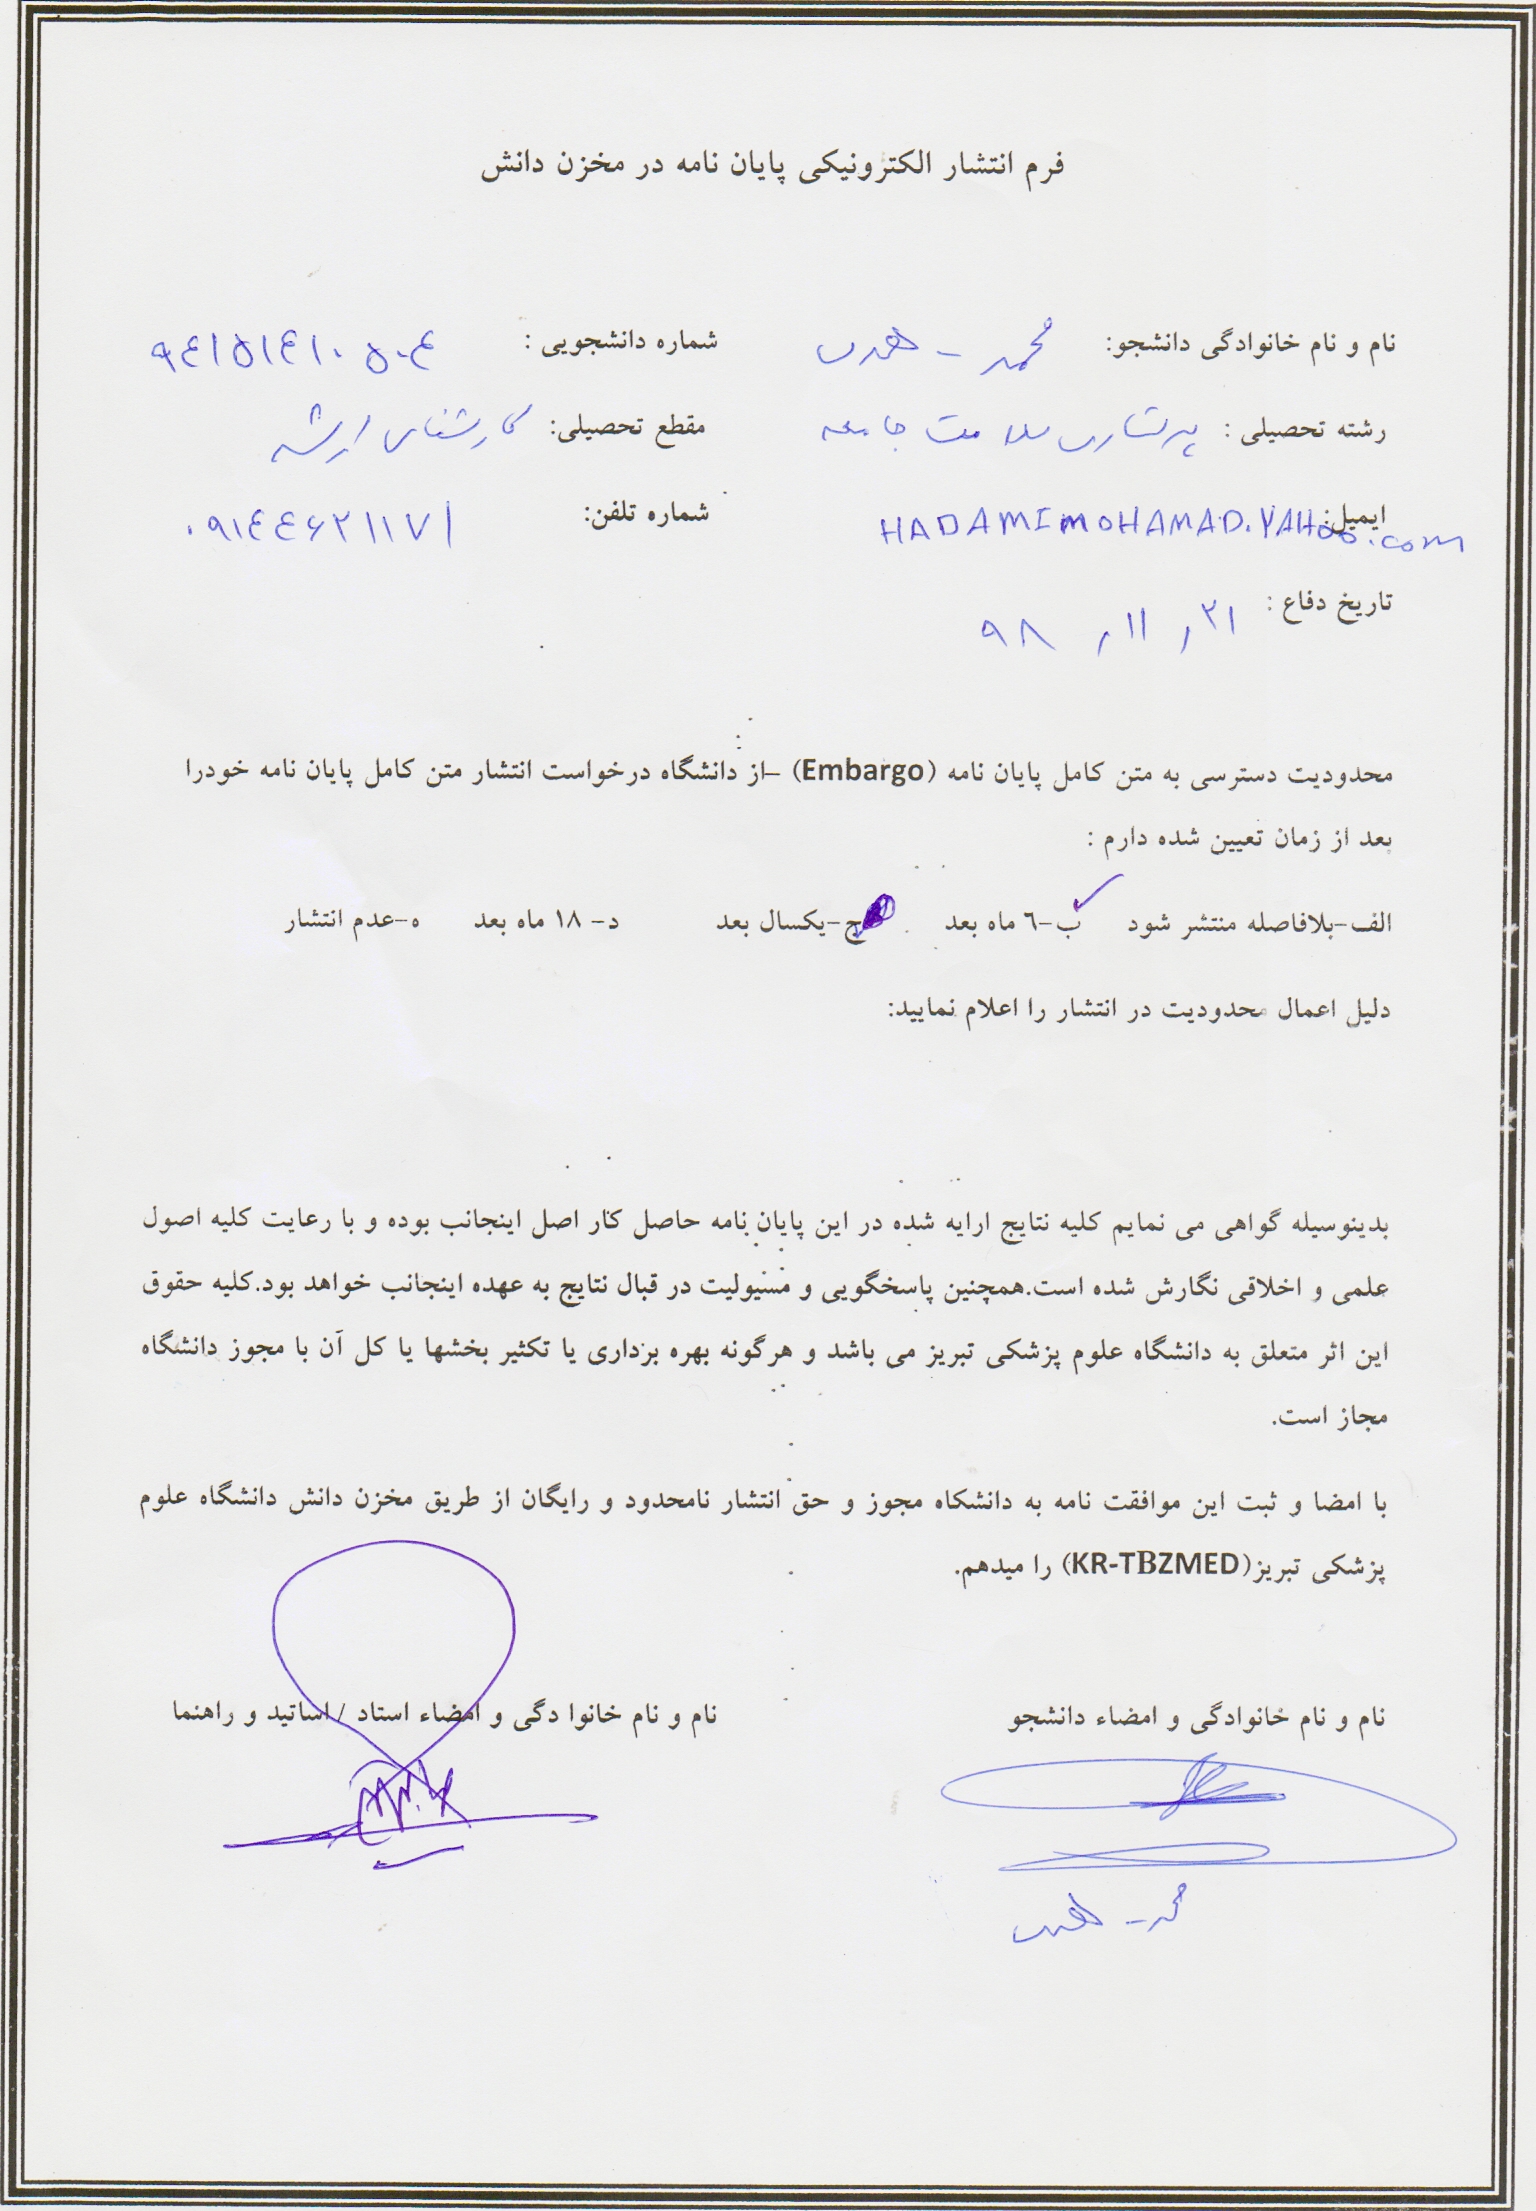 فرم انتشار الکترونیکی پایان نامه در مخزن دانش
نام و نام خانوادگی دانشجو: محمد شماره دانشجویی :
رشته تحصیلی : پرستاری سلامت جامعه مقطع تحصیلی: کارشناسی ارشد
ایمیل: HADAMIMOHAMAD.YAHOO.COM شماره تلفن: ۰۹۱٤٤۶۲۱۱۷۱
تاریخ دفاع : ۲۱ ، ۱۱ ، ۹۸
محدودیت دسترسی به متن کامل پایان نامه (Embargo) –از دانشگاه درخواست انتشار متن کامل پایان نامه خودرا
بعد از زمان تعیین شده دارم :
الف-بلافاصله منتشر شود ب-٦ ماه بعد ج-یکسال بعد د- ۱۸ ماه بعد ه-عدم انتشار
دلیل اعمال محدودیت در انتشار را اعلام نمایید:
بدینوسیله گواهی می نمایم کلیه نتایج ارایه شده در این پایان نامه حاصل کار اصل اینجانب بوده و با رعایت کلیه اصول
علمی و اخلاقی نگارش شده است.همچنین پاسخگویی و مسیولیت در قبال نتایج به عهده اینجانب خواهد بود.کلیه حقوق
این اثر متعلق به دانشگاه علوم پزشکی تبریز می باشد و هرگونه بهره برداری یا تکثیر بخشها یا کل آن با مجوز دانشگاه
مجاز است.
با امضا و ثبت این موافقت نامه به دانشکاه مجوز و حق انتشار نامحدود و رایگان از طریق مخزن دانش دانشگاه علوم
پزشکی تبریز(KR-TBZMED) را میدهم.
نام و نام خانوادگی و امضاء دانشجو نام و نام خانوا دگی و امضاء استاد / اساتید و راهنما